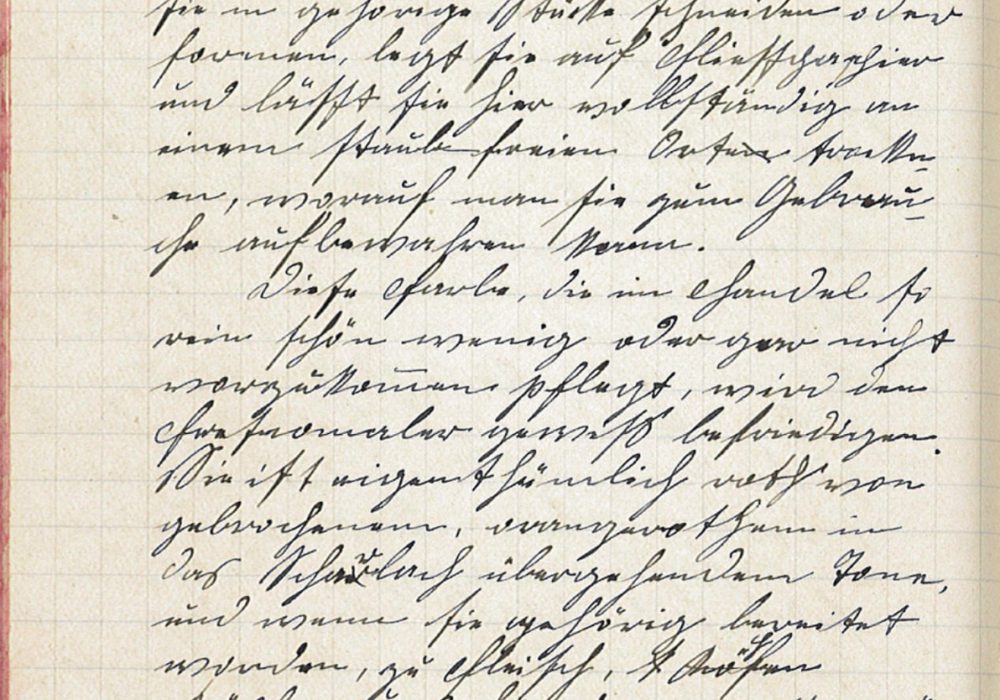 sie in gehörige Stücke schneiden oder
formen, legt sie auf Fliesspaphier
und lässt sie hier vollständig an
einem staub-freien Orte trockn-
en, worauf man sie zum Gebrau-
che aufbewahren kann.
Diese Farbe, die im Handel so
rein schön wenig oder gar nicht
vorzukom̄en pflegt, wird den
Freskomaler gewiss befriedigen.
Sie ist eigenthümlich roth von
gebrochenem, orangerothem in
das Scharlach übergehendem Tone,
und wenn sie gehörig bereitet
worden, zu Fleisch,